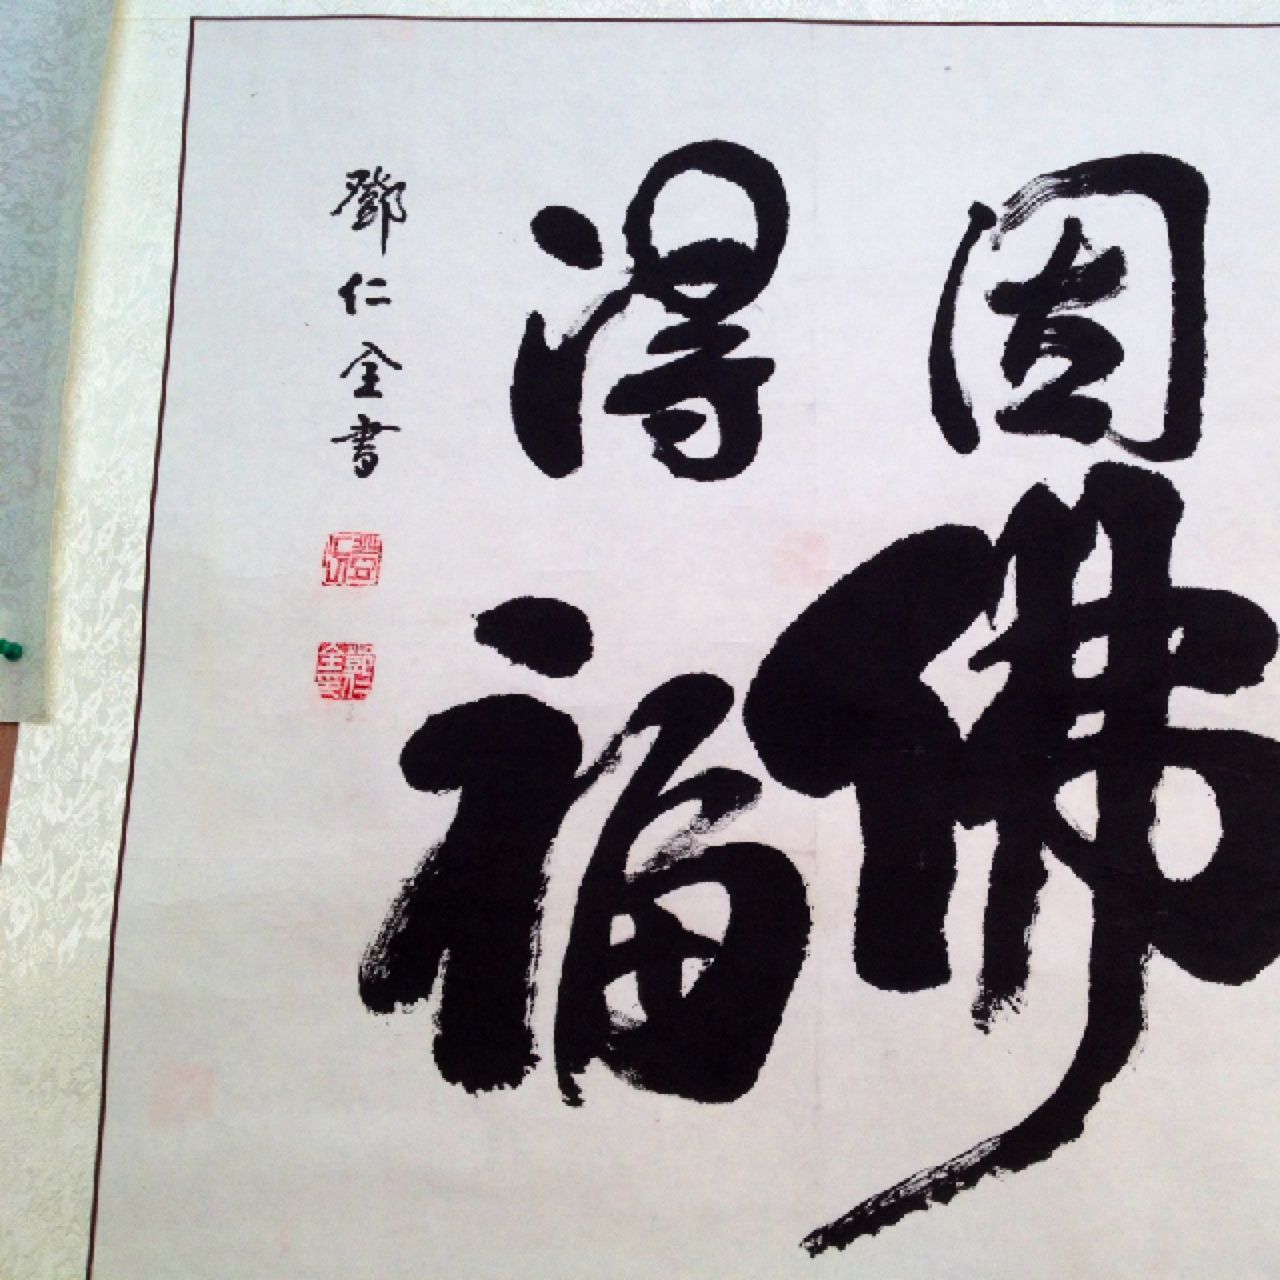 固佛
得福
鄧仁全書